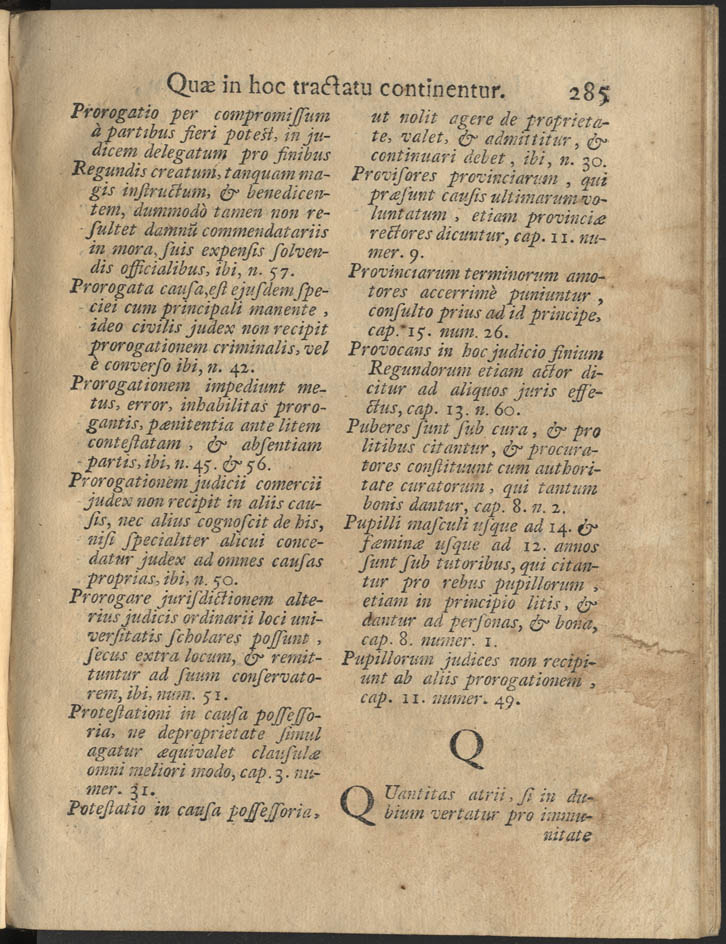 Quæ in hoc tractatu continentur. 285
Prorogatio per compromiſſum
à partibus fieri poteſt, in ju-
dicem delegatum pro finibus
Regundis creatum, tanquam ma-
gis inſtructum, & benedicen-
tem, dummodò tamen non re-
ſultet damnũ commendatariis
in mora, ſuis expenſis ſolven-
dis officialibus, ibi, n. 57.
Prorogata cauſa, eſt ejuſdem ſpe-
ciei cum principali manente,
ideo civilis judex non recipit
prorogationem criminalis, vel
è converſo ibi, n. 42.
Prorogationem impediunt me-
tus, error, inhabilitas proro-
gantis, pænitentia ante litem
conteſtatam, & abſentiam
partis, ibi, n. 45. & 56.
Prorogationem judicii comercii
judex non recipit in aliis cau-
ſis, nec alius cognoſcit de his,
niſi ſpecialiter alicui conce-
datur judex ad omnes cauſas
proprias, ibi, n. 50.
Prorogare juriſdictionem alte-
rius judicis ordinarii loci uni-
verſitatis ſcholares poſſunt,
ſecus extra locum, & remit-
tuntur ad ſuum conſervato-
rem, ibi, num. 51.
Proteſtationi in cauſa poſſeſſo-
ria, ne deproprietate ſimul
agatur æquivalet clauſulæ
omni meliori modo, cap. 3. nu-
mer. 31.
Poteſtatio in cauſa poſſeſſoria,
ut nolit agere de proprieta-
te, valet, & admittitur, &
continuari debet, ibi, n. 30.
Proviſores provinciarum, qui
præſunt cauſis ultimarum vo-
luntatum, etiam provinciæ
rectores dicuntur, cap. 11. nu-
mer. 9.
Provinciarum terminorum amo-
tores accerrimè puniuntur,
conſulto prius ad id principe,
cap. 15. num. 26.
Provocans in hoc judicio finium
Regundorum etiam actor di-
citur ad aliquos juris effe-
ctus, cap. 13. n. 60.
Puberes ſunt ſub cura, & pro
litibus citantur, & procura-
tores conſtituunt cum authori-
tate curatorum, qui tantum
bonis dantur, cap. 8. n. 2.
Pupilli maſculi uſque ad 14. &
fæminæ uſque ad 12. annos
ſunt ſub tutoribus, qui citan-
tur pro rebus pupillorum,
etiam in principio litis, &
dantur ad perſonas, & bona,
cap. 8. numer. 1.
Pupillorum judices non recipi-
unt ab aliis prorogationem,
cap. 11. numer. 49.
Q
QUantitas atrii, ſi in du-
bium vertatur pro immu-
nitate